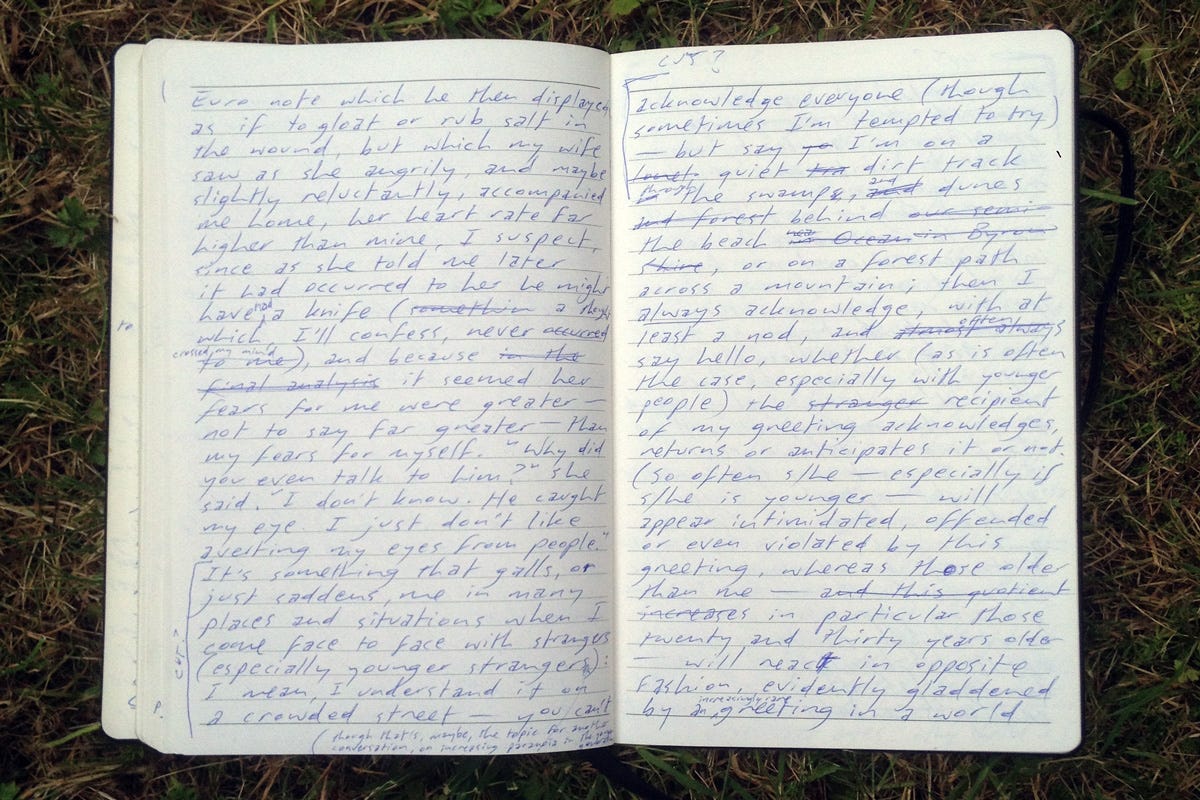 Euro note which he then displayed
as if to gloat or rub salt in
the wound, but which my wife
saw as she angrily, and maybe
slightly reluctantly, accompanied
me home, her heart rate far
higher than mine, I suspect,
since as she told me later
it had occurred to her he might
have had a knife (somethin a
which, I'll confess, never occurred
crossed my mind
to me), and because in the
final analysis it seemed her
fears for me were greater —
not to say far greater — than
my fears for myself. "Why did
you even talk to him?" she
said. "I don't know. He caught
my eye. I just don't like
averting my eyes from people."
It's something that galls, or
just saddens, me in many
places and situations when I
come face to face with strangers
(especially younger strangers):
I mean, I understand it on
a crowded street — you can't
(though that's, maybe, the topic for another
conversation, on increasing paranoia in the
CUT?
P.
to
CUT?
acknowledge everyone (though
sometimes I'm tempted to try)
— but say I'm on a
quiet dirt track
through the swamps, and dunes
and forest behind our semi-
the beach near Ocean in Byron
Shire, or on a forest path
across a mountain; then I
always acknowledge, with at
least a nod, and almost always
often
say hello, whether (as is often
the case, especially with younger
people) the stranger recipient
of my greeting acknowledges,
returns or anticipates it or not.
(So often s/he — especially if
s/he is younger — will
appear intimidated, offended
or even violated by this
greeting, whereas those older
than me — and this quotient
increases in particular those
twenty and thirty years older
— will react in opposite
fashion, evidently gladdened
increasingly rare
by an greeting in a world